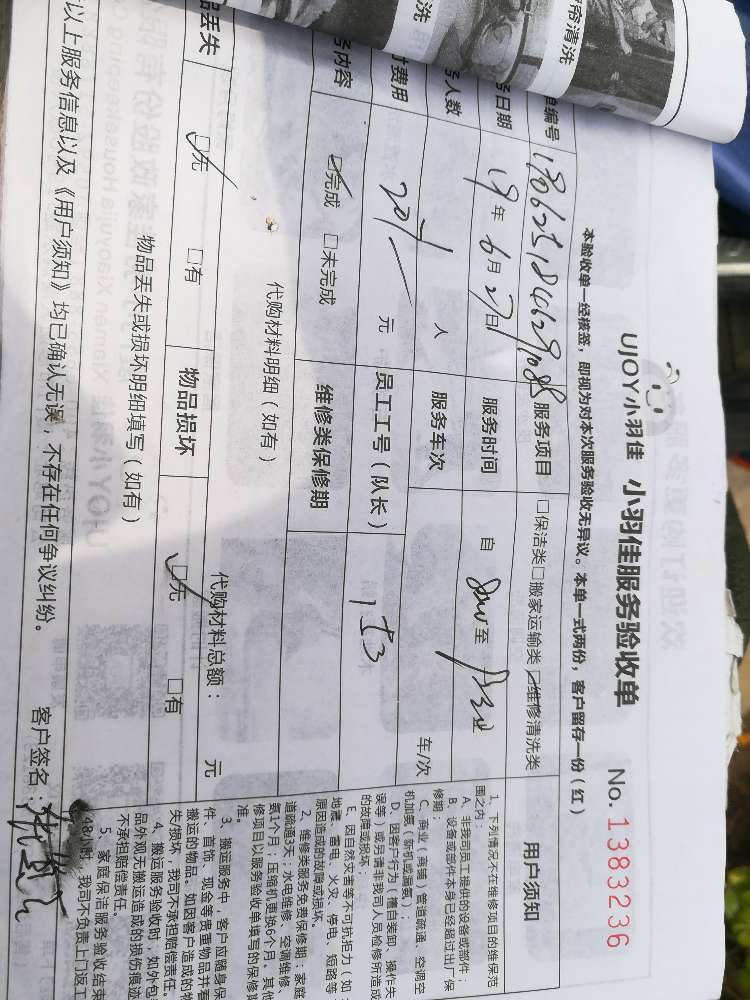 UJOY小羽佳 小羽佳服务验收单 No. 1383236
本验收单一经核签，即视为对本次服务验收无异议。本单一式两份，客户留存一份（红）
单编号 服务项目 □保洁类□搬家运输类☑维修清洗类
务日期 19年6月27日 服务时间 自 至
务人数 人 服务车次 车/次
付费用 元 员工工号（队长）
务内容 ☑完成 □未完成 维修类保修期
代购材料明细（如有） 代购材料总额： 元
品丢失 ☑无 □有 物品损坏 ☑无 □有
物品丢失或损坏明细填写（如有）
以上服务信息以及《用户须知》均已确认无误，不存在任何争议纠纷。 客户签名：
用户须知
1、下列情况不在维修项目的维保范
围之内：
A、非我司员工提供的设备或部件；
B、设备或部件本身已经超过出厂保
修期；
C、商业（商铺）管道疏通、空调空
机加氨（新机或漏氨）；
D、因客户行为（擅自装卸、操作失
误等）或另请非我司人员检修所造成
的故障或损坏；
E、因自然灾害等不可抗拒力（如：
地震、雷电、火灾、停电、短路等
原因造成的故障或损坏。
2、维修类服务免费保修期：家庭
道疏通3天；水电维修、空调维修、
氨1个月；压缩机更换6个月。其他
修项目以服务验收单填写的保修期
准。
3、搬运服务中，客户应随身保
件、首饰、现金等贵重物品并看
搬运的物品。如因客户造成的物
失/损坏，我司不承担赔偿责任。
4、搬运服务验收时，如外包
品外观无搬运造成的损伤痕迹
不承担赔偿责任。
5、家庭保洁服务验收结束
48小时，我司不负责上门返工
清洗
帘清洗